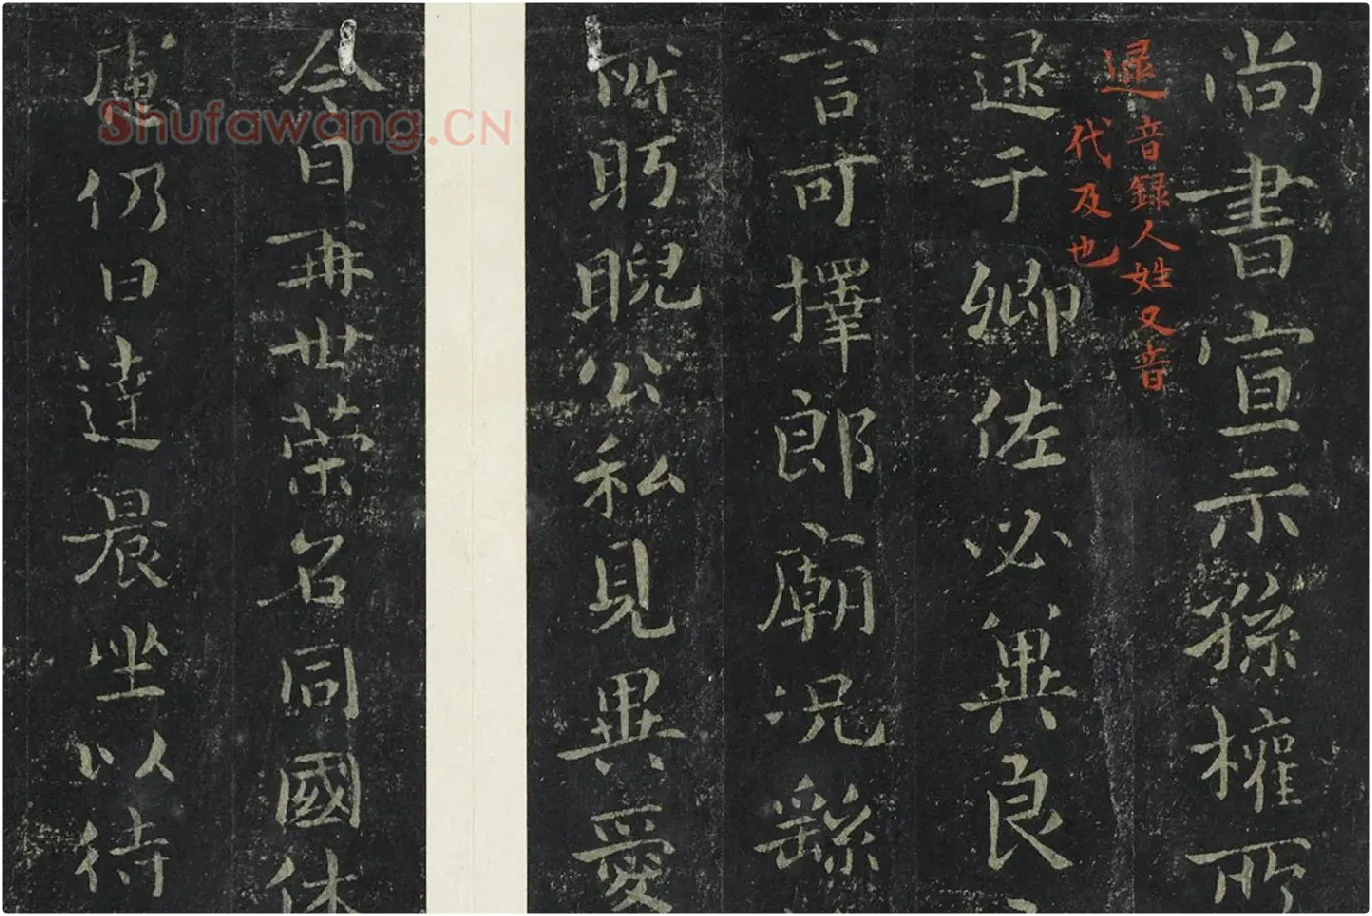 尚書宣示孫權所
逯音録人姓又音
代及也
逯于卿佐必冀良
言可擇郎廟況繇
所眄睨公私見異愛
今日再世榮名同國休
慮仍日達晨坐以待
Shufawang.CN